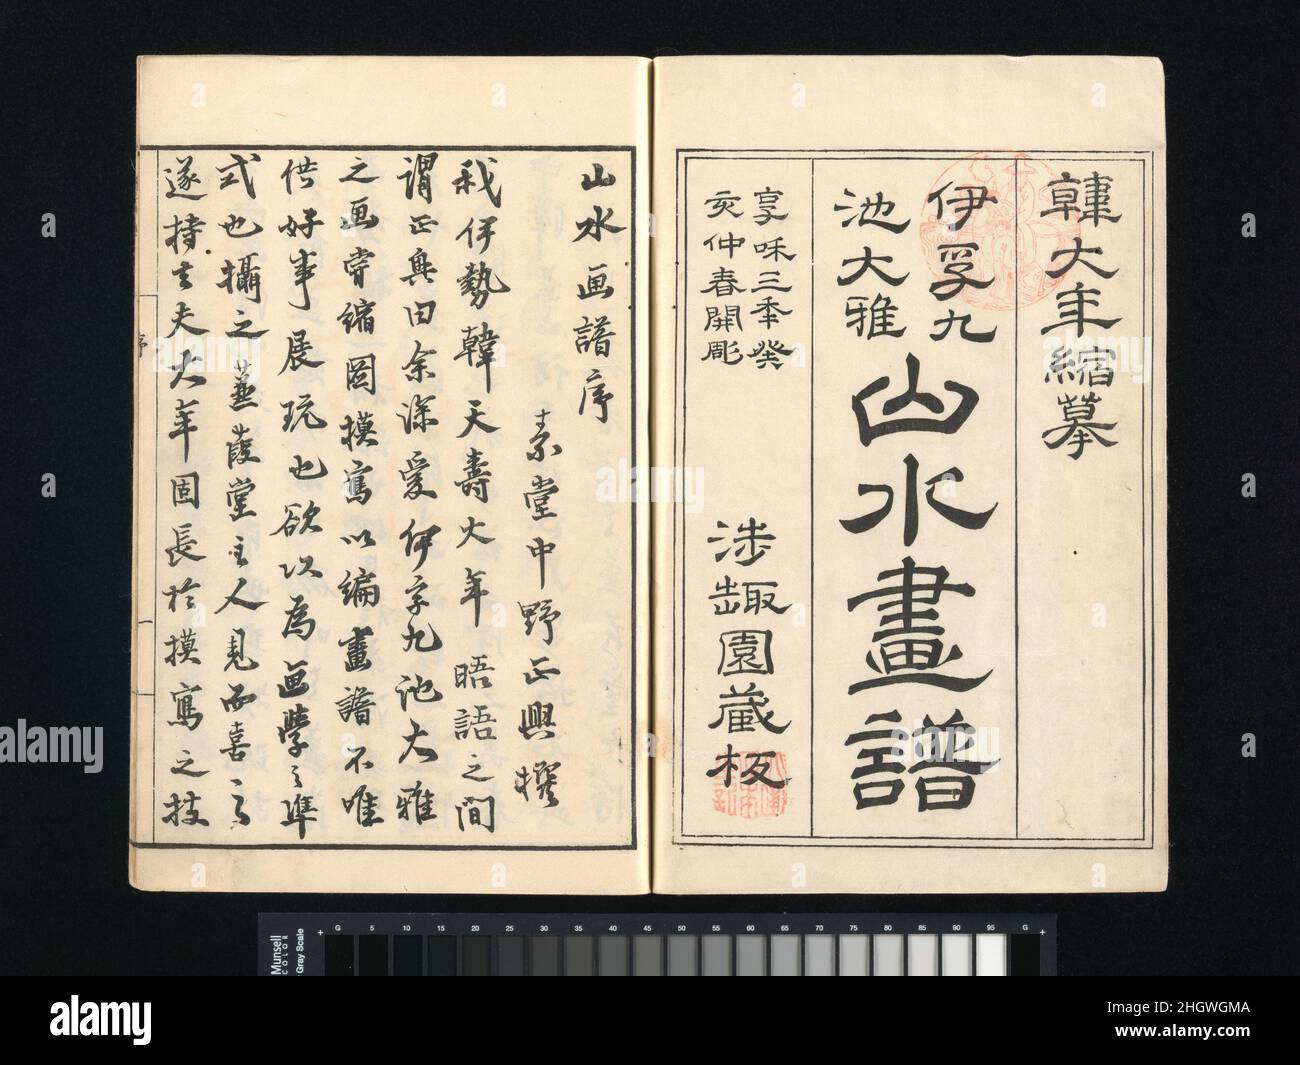 韓大年縮摹
伊孚九
池大雅
山水畫譜
享咊三年癸
亥仲春開彫
涉趣園蔵板
山水画譜序
素堂中野正興撰
我伊勢韓天壽大年晤語之間
謂正興曰余深愛伊孚九池大雅
之画嘗縮図摸寫以編畫譜不唯
供好事展玩也欲以為画學之準
式也攝之蒹葭堂主人見而喜之
遂持去夫大年固長於摸寫之技
序
一
Munsell
COLOR
Gray Scale
G 5 10 15 20 25 30 35 40 45 50 55 60 65 70 75 80 85 90 95 G
alamy
a
alamy
Image ID: 2HGWGMA
www.alamy.com